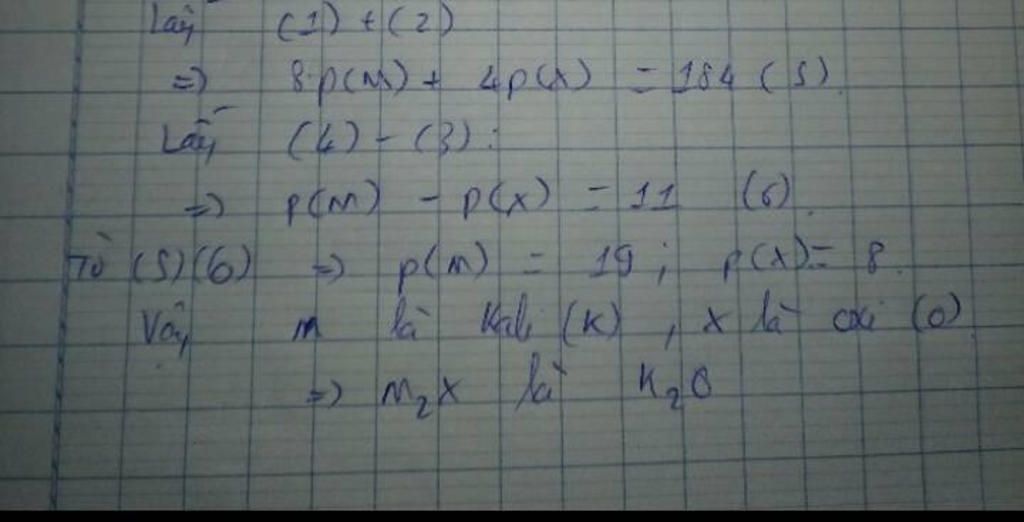 Lấy (1) + (2)
=> 8.p(M) + 4p(X) = 184 (5).
Lấy (4) - (3) :
=> p(M) - p(X) = 11 (6).
Từ (5)(6) => p(M) = 19 ; p(X) = 8.
Vậy M là Kali (K) , X là oxi (O)
=> M₂X là K₂O